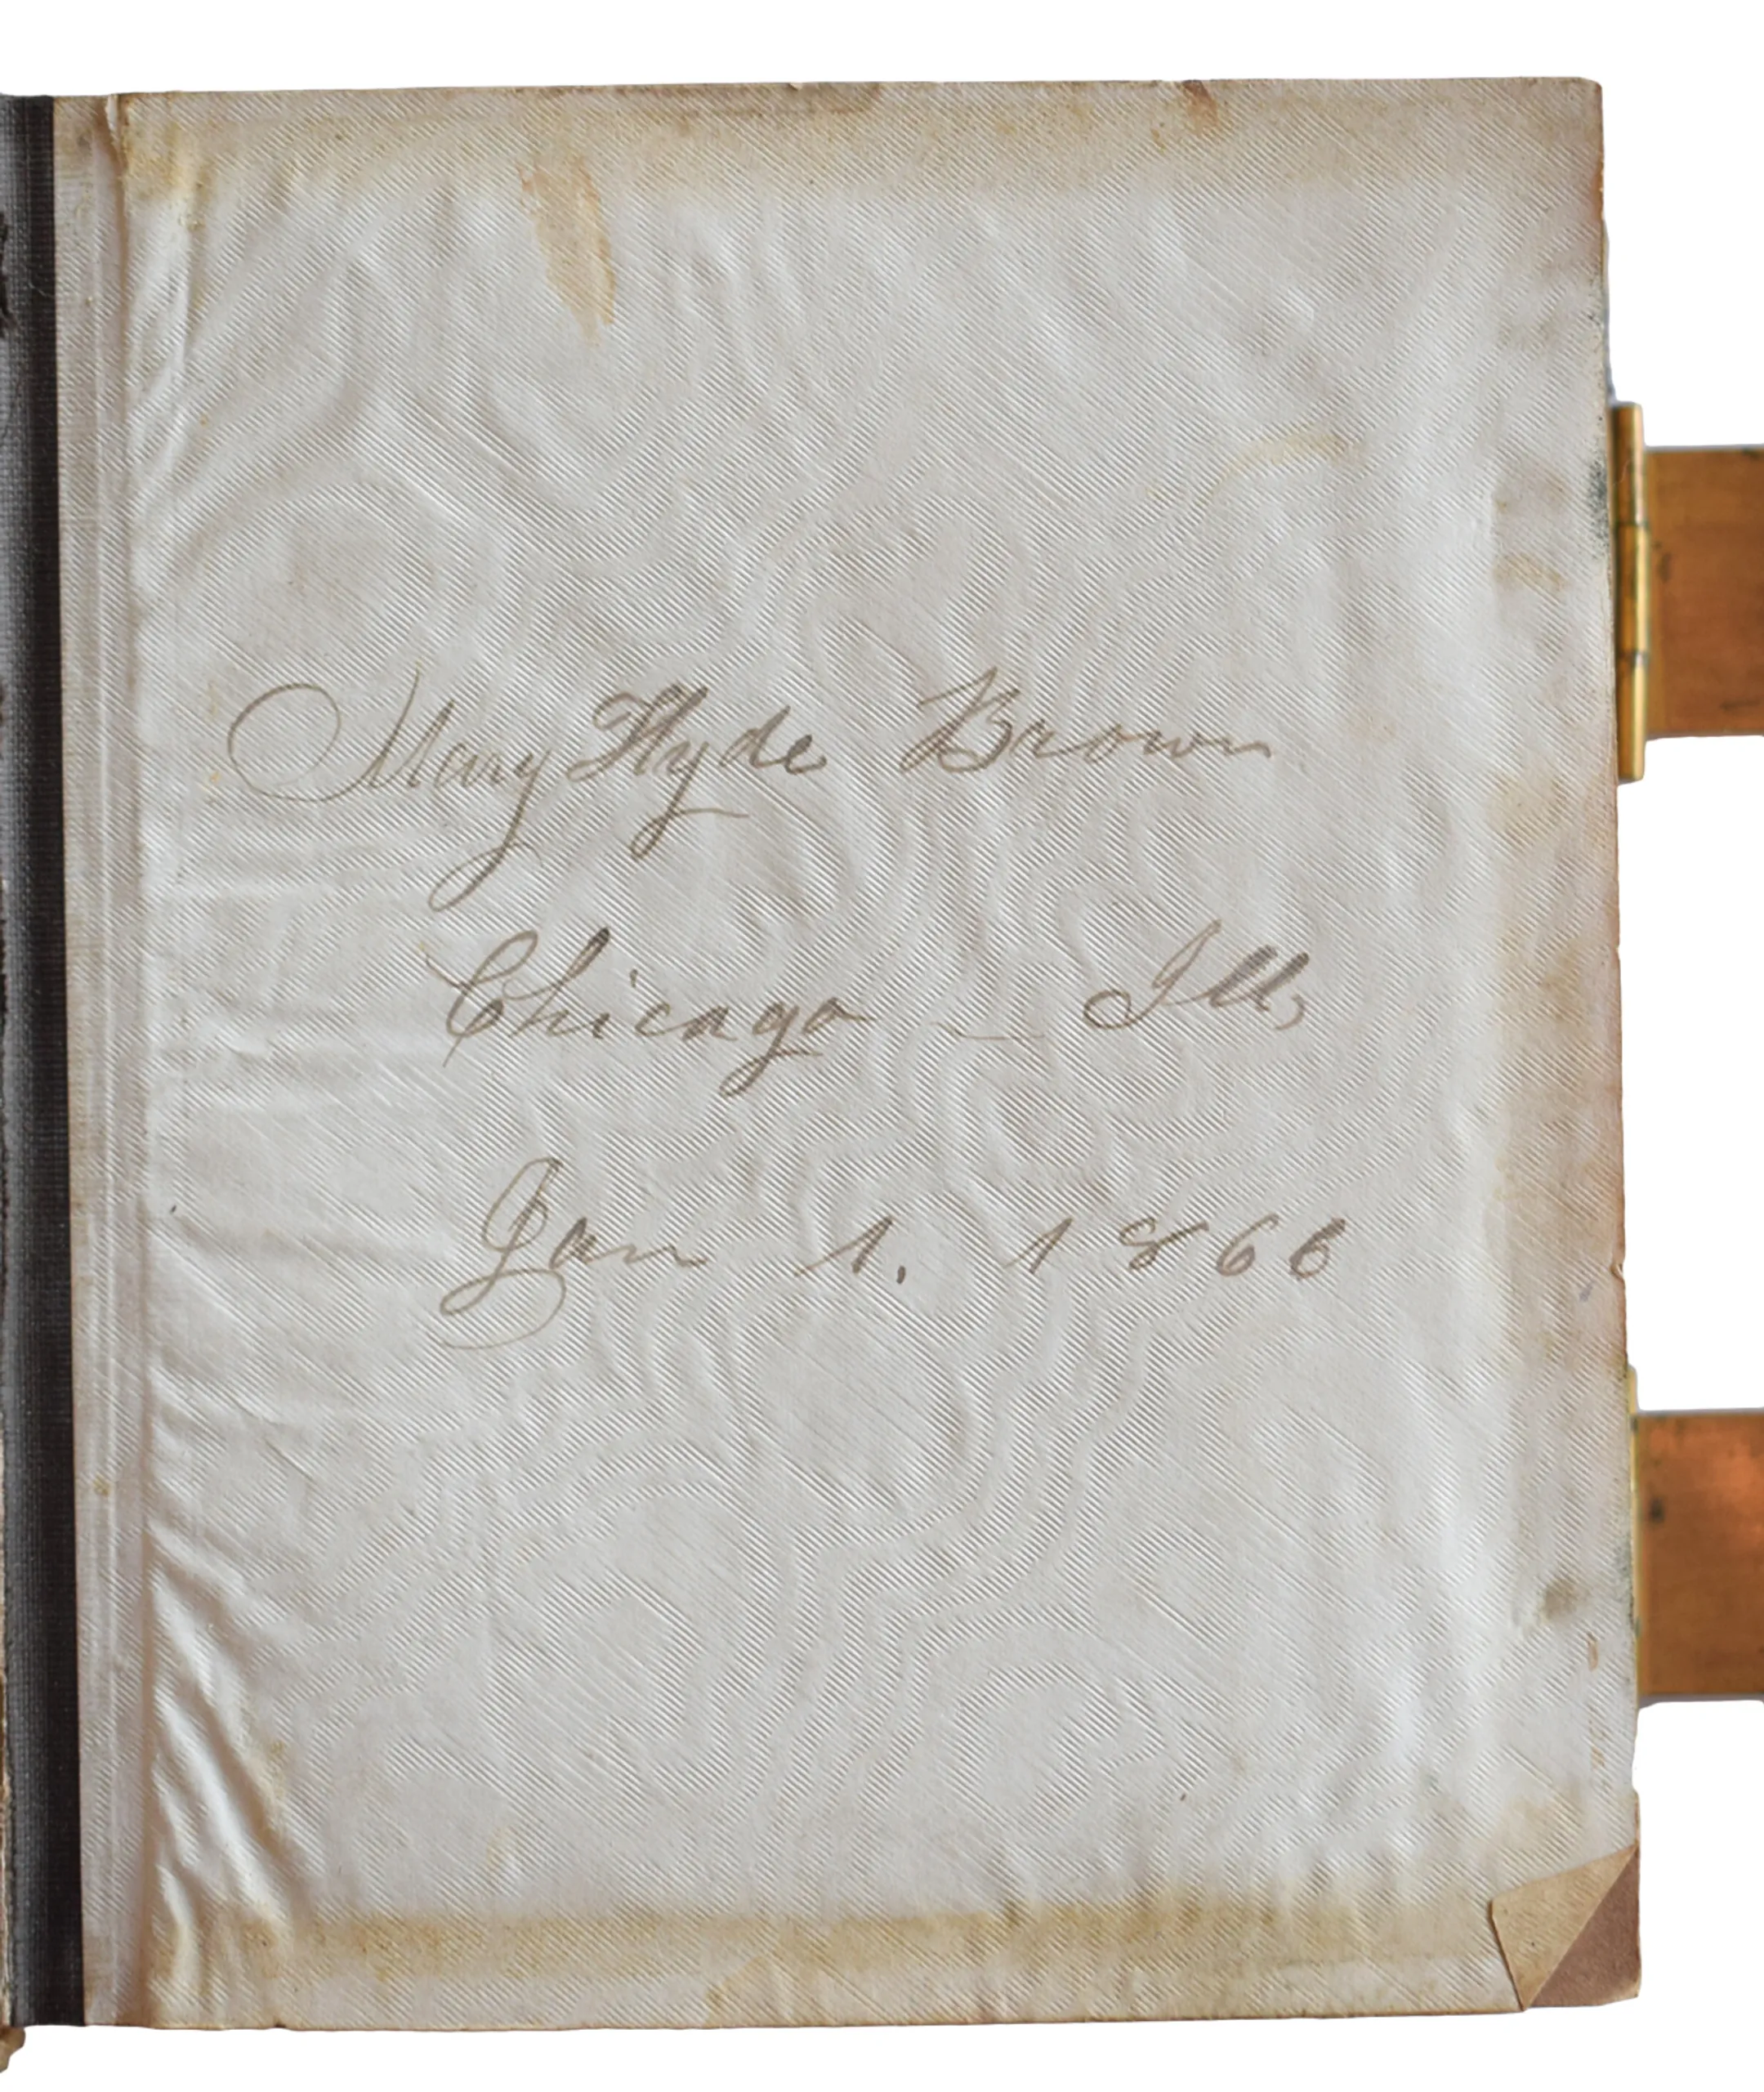 Mary Hyde Brown
Chicago - Ill,
Jan 1. 1866